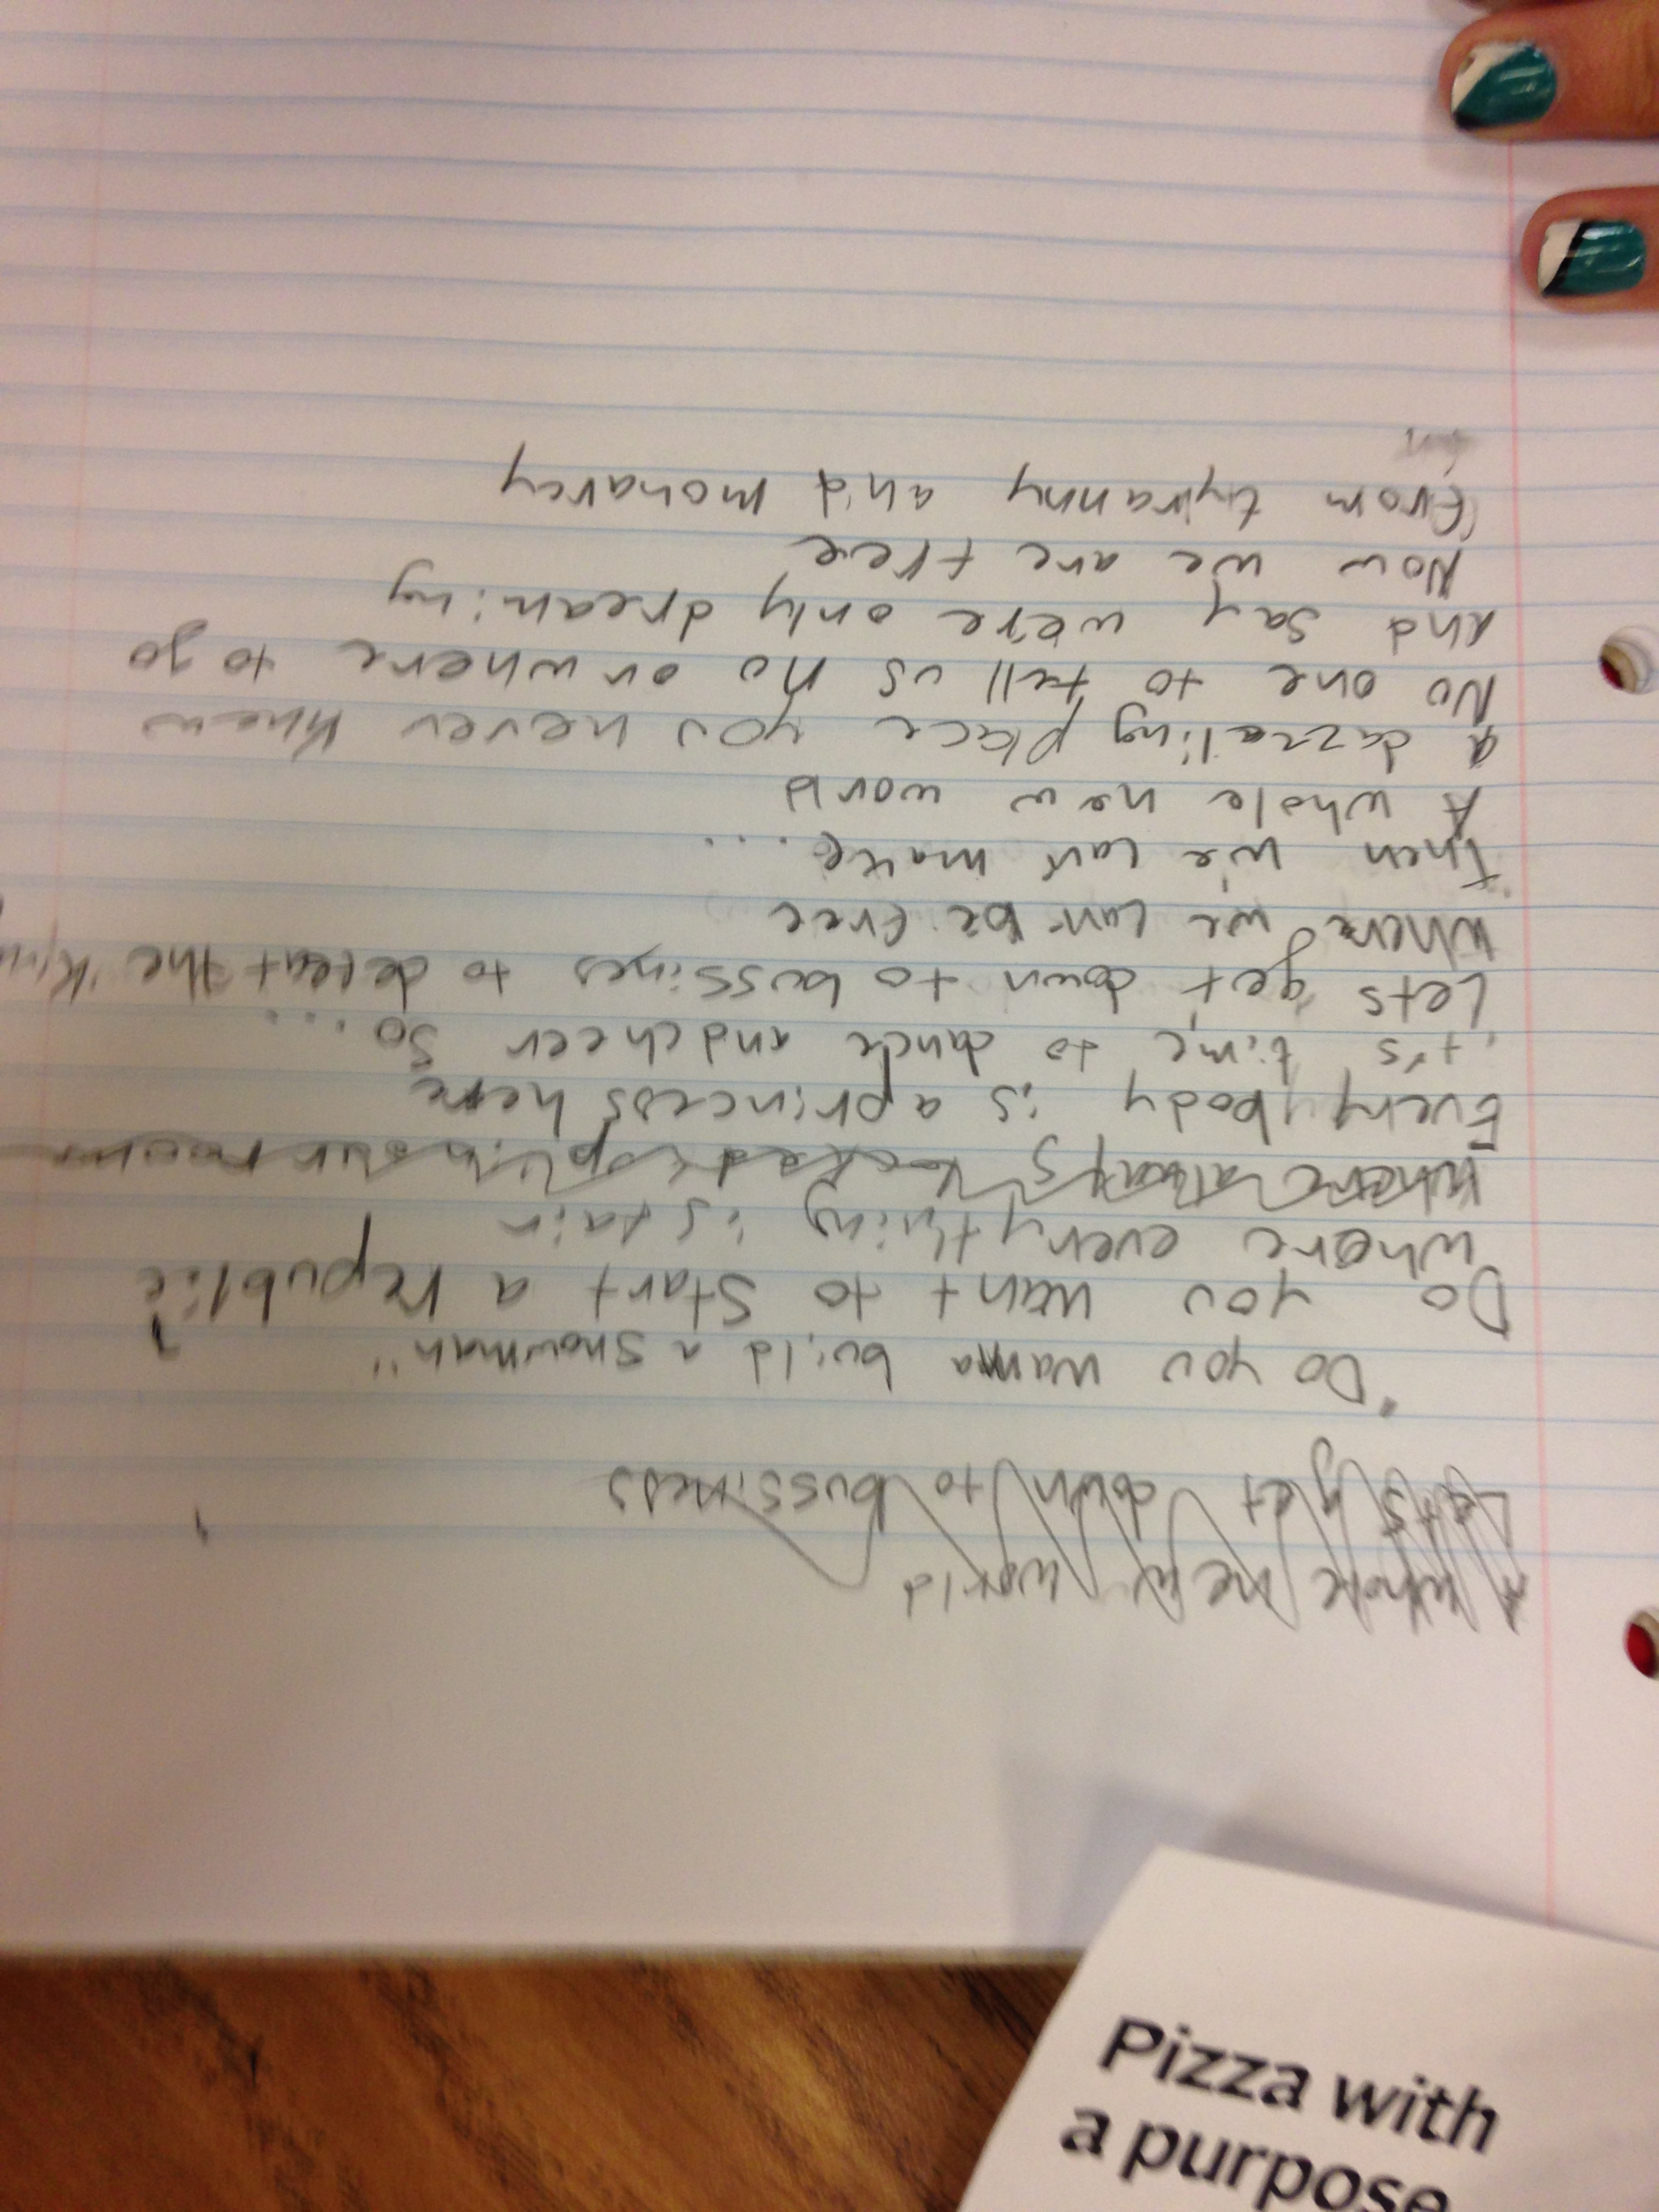 A whole new world
Lets get down to bussiness
"Do you wanna build a snowman"
Do you want to start a republic?
where everything is fair
where always locked up in our rooms
Everybody is a princess here
it's time to dance and cheer so...
Lets get down to bussines to defeat the
where we can be free
Then we can make....
A whole new world
A dazzaling place you never knew
No one to tell us no or where to go
And say we're only dreaming
Now we are free
from tyranny and monarcy
Pizza with
a purpose